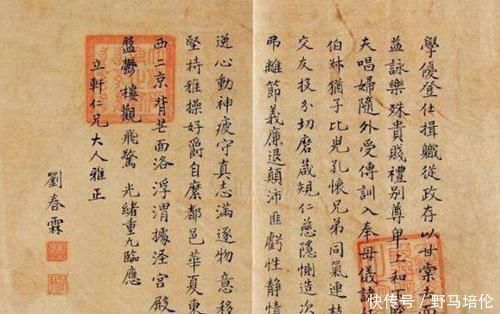 學優登仕攝職從政存以甘棠去
益詠樂殊貴賤禮別尊卑上和下
夫唱婦隨外受傅訓入奉母儀諸
伯叔猶子比兒孔懷兄弟同氣連枝
交友投分切磨箴規仁慈隱惻造次
弗離節義廉退顛沛匪虧性靜情
逸心動神疲守真志滿逐物意移
堅持雅操好爵自縻都邑華夏東
西二京背芒面洛浮渭據涇宮殿
盤鬱樓觀飛驚 光緒重九臨應
立軒仁兄大人雅正
劉春霖
快传号 / 野马培伦